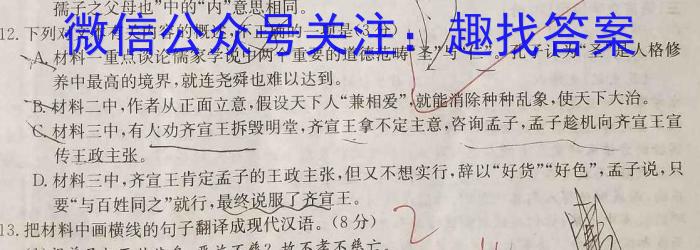 孺子之父母也”中的“内”意思相同。
微信公众号关注：趣找答案
12.下列对 的概述,不正确的一项是(3分)
A.材料一重点谈论儒家学说中两个重要的道德范畴“圣”与“仁”。孔子认为“圣”是人格修
养中最高的境界,就连尧舜也难以达到。
B.材料二中,作者从正面立意,假设天下人“兼相爱”,就能消除种种乱象,使天下大治。
C.材料三中,有人劝齐宣王拆毁明堂,齐宣王拿不定主意,咨询孟子,孟子趁机向齐宣王宣
传王政主张。
D.材料三中,齐宣王肯定孟子的王政主张,但又不想实行,辞以“好货”“好色”,孟子说,只
要“与百姓同之”就行,最终说服了齐宣王。
13.把材料中画横线的句子翻译成现代汉语。(8分)